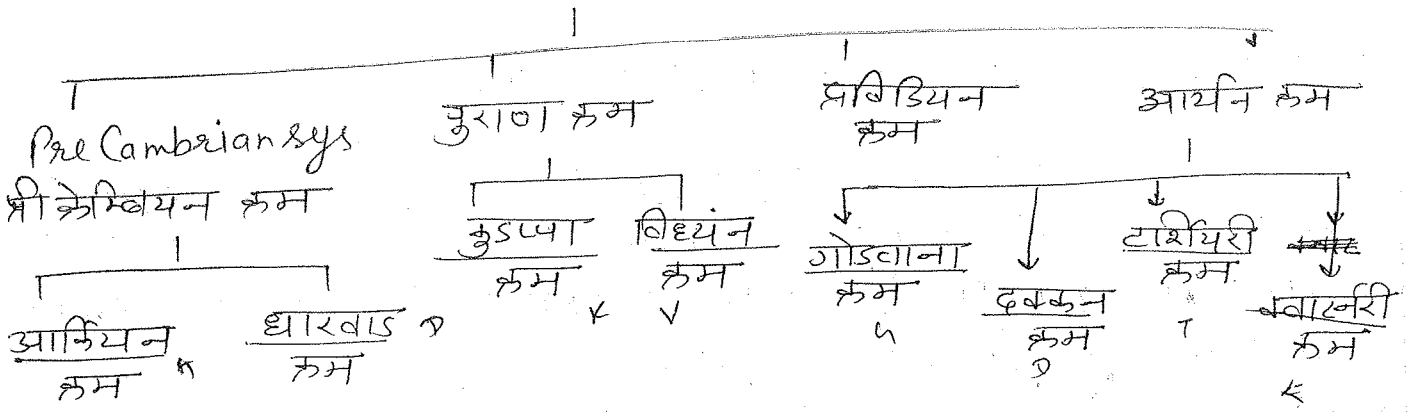 Pre Cambrian sys
प्री केम्ब्रियन क्रम
आर्कियन
क्रम
धारवाड
क्रम
पुराण क्रम
कुडप्पा
क्रम
विध्यंन
क्रम
द्रविडियन
क्रम
आर्यन क्रम
गोडवाना
क्रम
दक्कन
क्रम
टर्शियरी
क्रम
क्वार्टनरी
क्रम